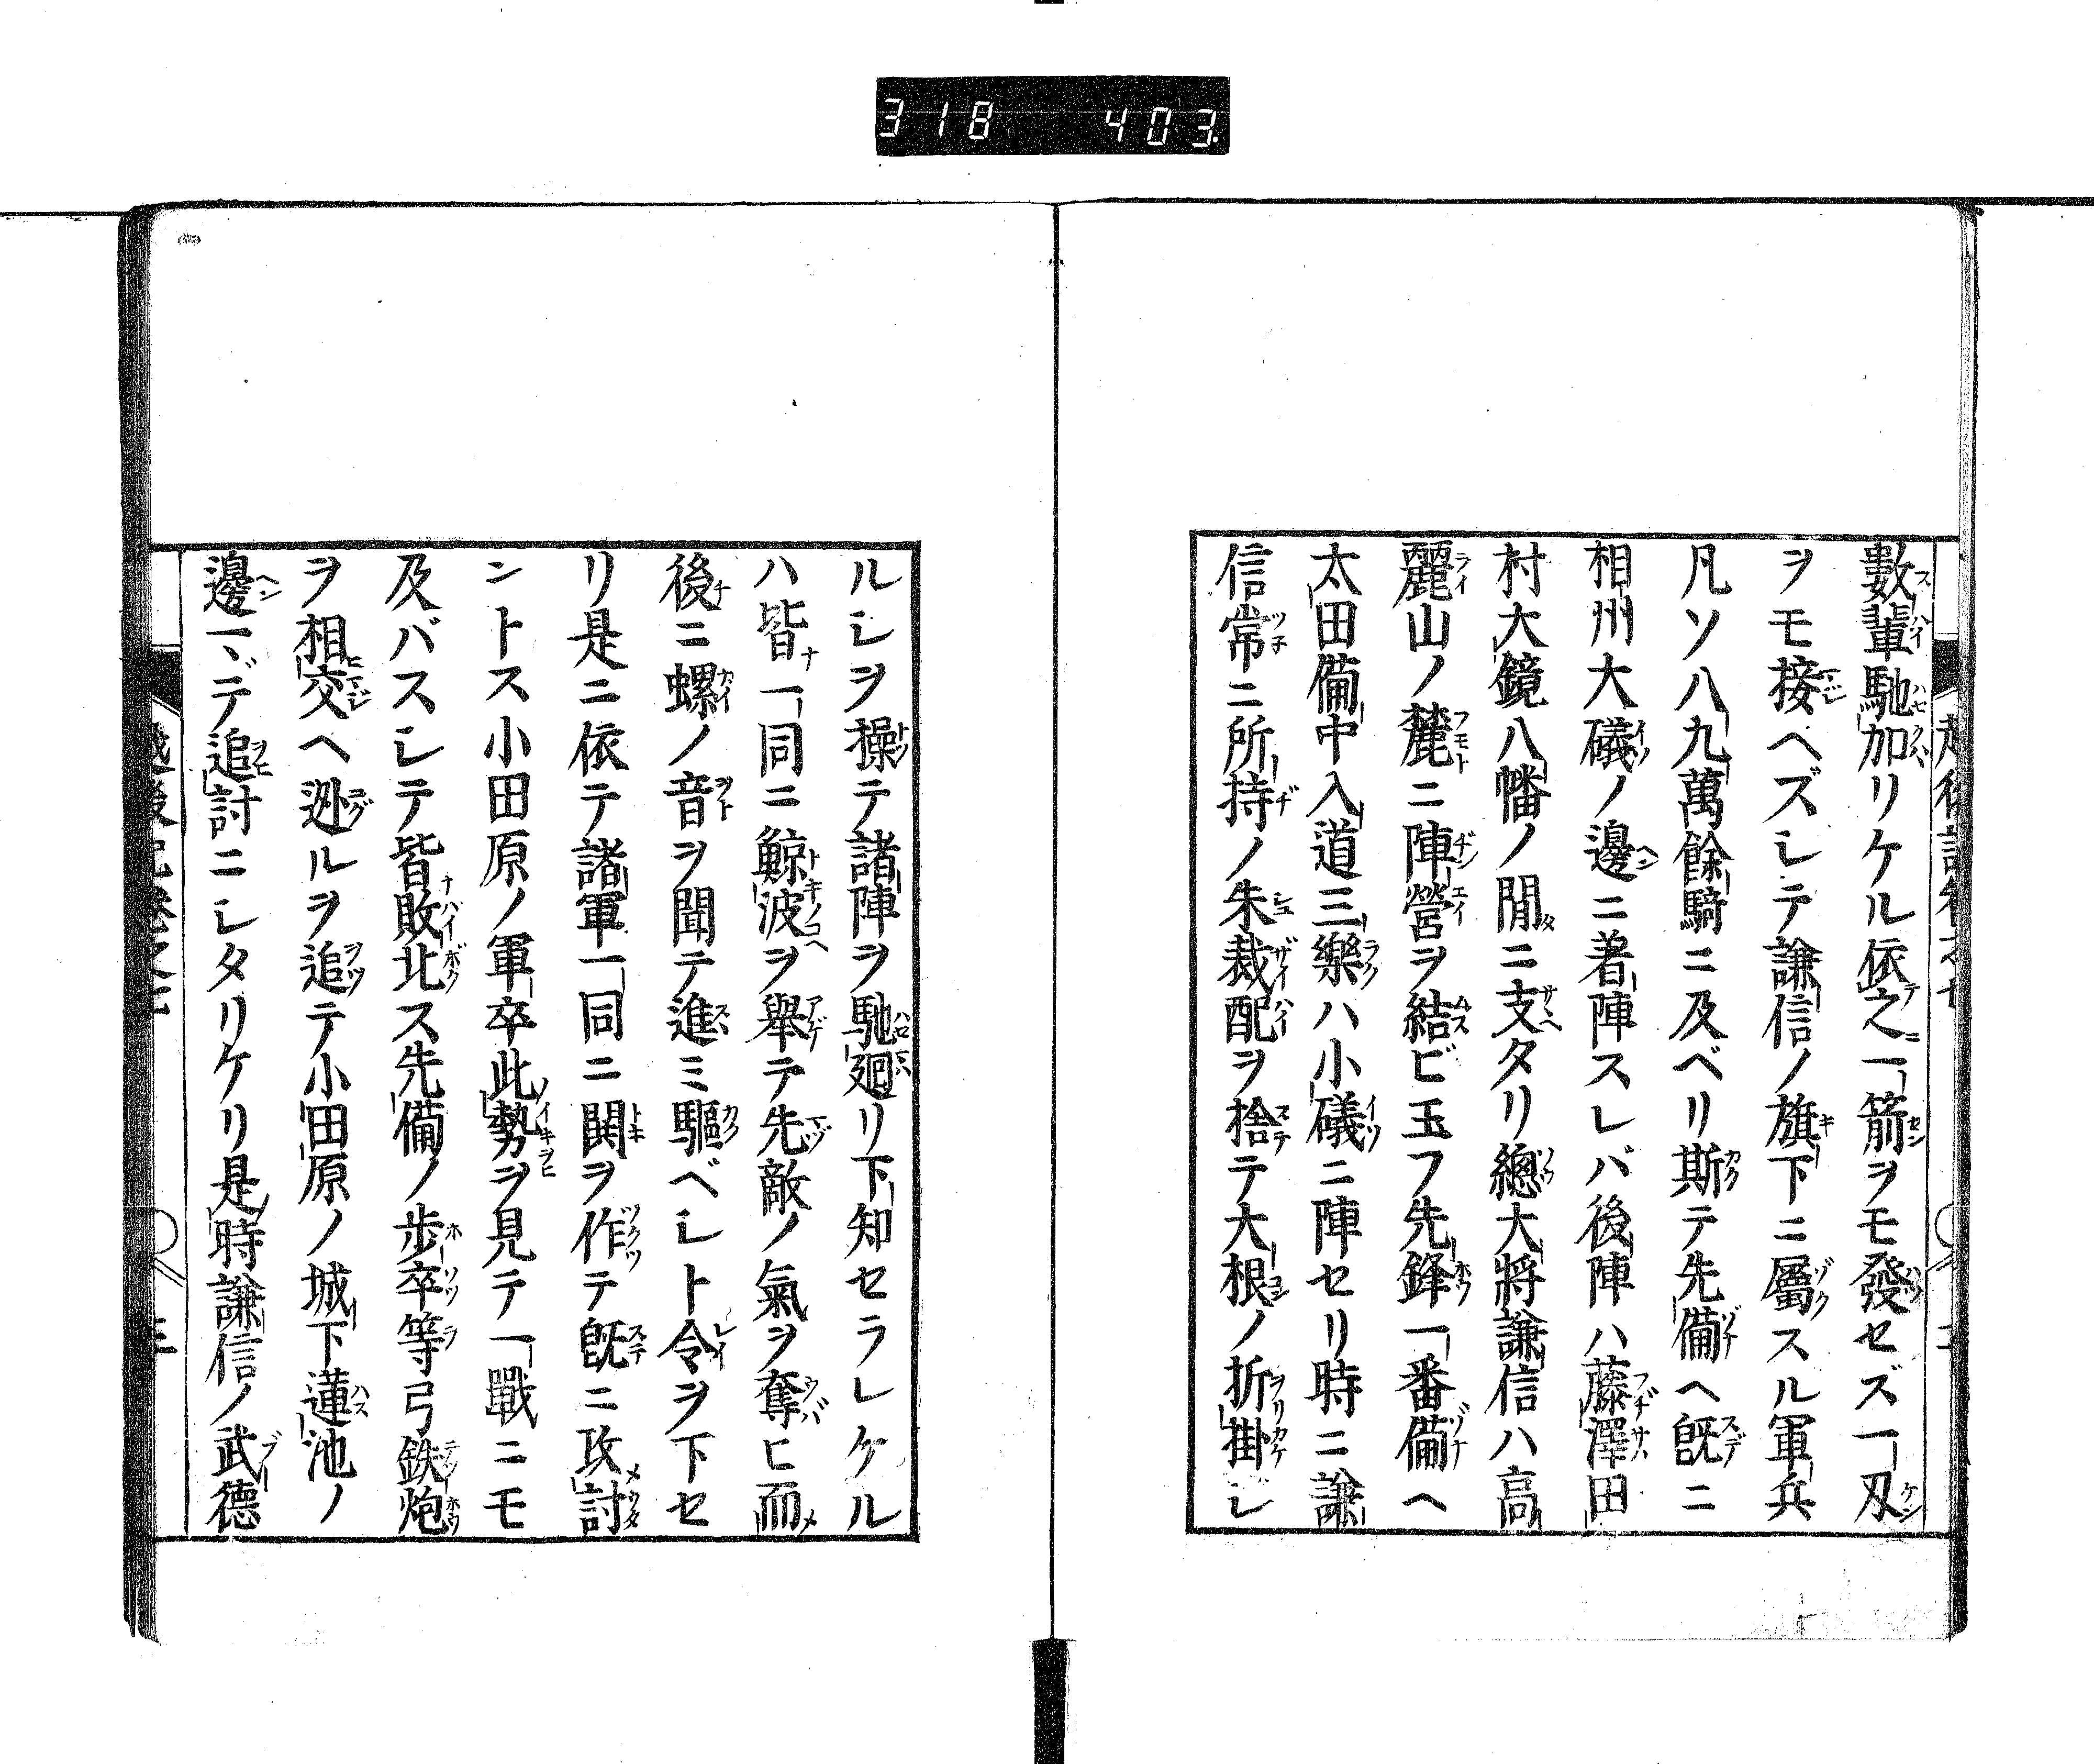 318 403
數輩馳加リケル依之一箭ヲモ發セズ一刄
ヲモ接ヘズシテ謙信ノ旗下ニ屬スル軍兵
凡ソ八九萬餘騎ニ及ベリ斯テ先備ヘ既ニ
相州大礒ノ邊ニ著陣スレバ後陣ハ藤澤田
村大鏡八幡ノ間ニ支タリ總大將謙信ハ高
麗山ノ麓ニ陣營ヲ結ビ玉フ先鋒一番備ヘ
太田備中入道三樂ハ小礒ニ陣セリ時ニ謙
信常ニ所持ノ朱裁配ヲ捨テ大根ノ折掛シ
ルシヲ操テ諸陣ヲ馳廻リ下知セラレケル
ハ皆一同ニ鯨波ヲ舉テ先敵ノ氣ヲ奪ヒ而
後ニ螺ノ音ヲ聞テ進ミ驅ベシト令ヲ下セ
リ是ニ依テ諸軍一同ニ鬨ヲ作テ既ニ攻討
ントス小田原ノ軍卒此勢ヲ見テ一戰ニモ
及バスシテ皆敗北ス先備ノ歩卒等弓鉄炮
ヲ相交ヘ迯ルヲ追テ小田原ノ城下蓮池ノ
邊マデ追討ニシタリケリ是時謙信ノ武德